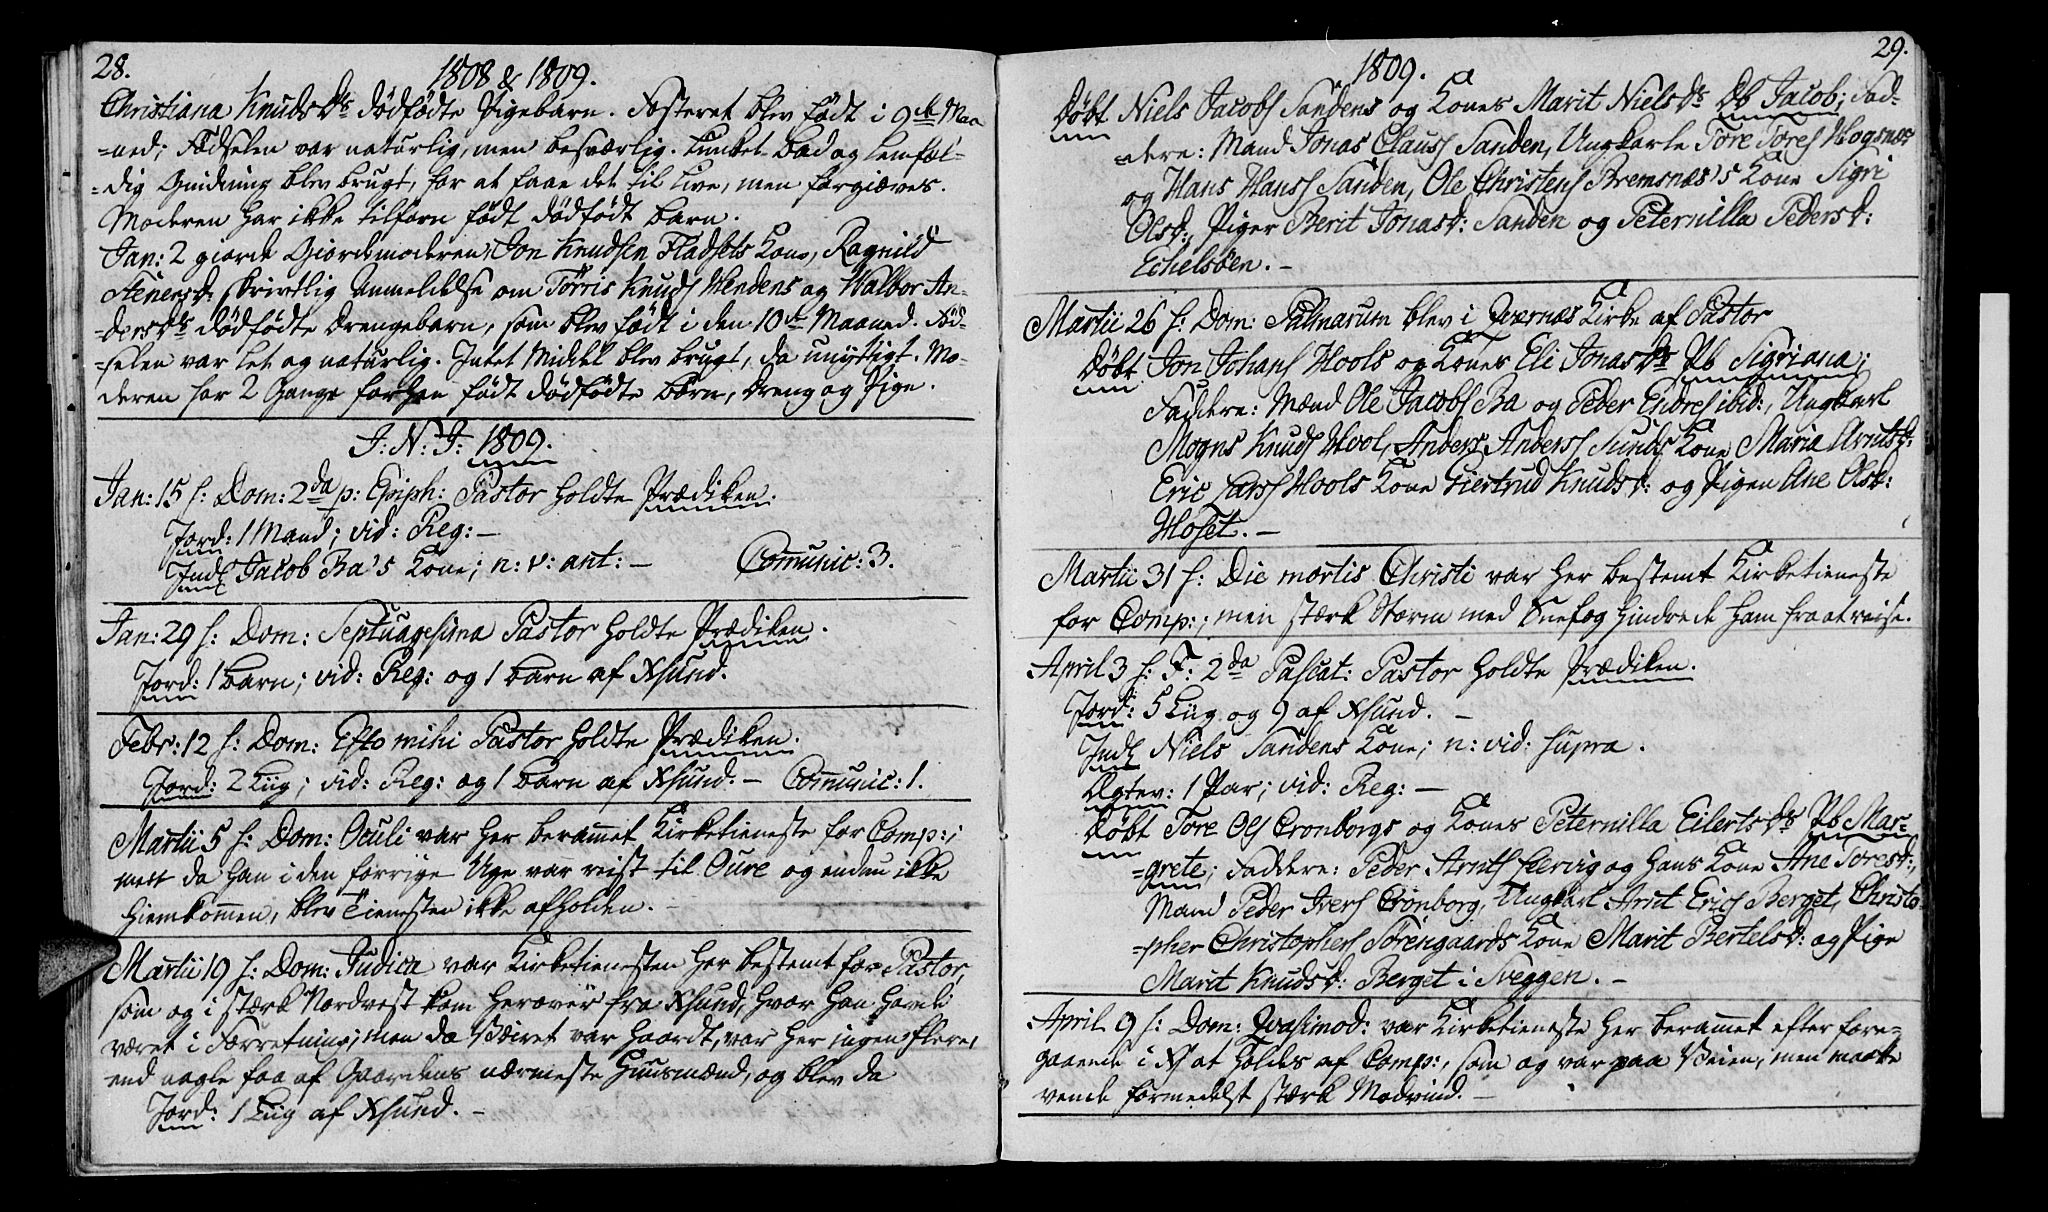 28.
1808 & 1809.
Christiana Knuds Dr dødfødte Pigebarn. Fosteret blev født i 9de Maa
=ned; Fødselen var naturlig, men besværlig. Lunket Bad og lemfæl=
=dig Gnidning blev brugt, for at faae det til Live, men forgiæves.
Moderen har ikke tilforn født dødfødt Barn.
Jan: 2 giorde Giordemoderen, Jon Knudsen Fladsets Kone, Ragnild
Stenersd: skrivtlig Anmeldelse om Törris Knuds Hendens og Walbor An=
=dersdrs dødfødte Drengebarn, som blev født i den 10de Maaned. Fød=
=selen var let og naturlig. Intet Middel blev brugt, da unyttigt. Mo=
deren har 2 Gange forhen født dødfødte Børn, Dreng og Pige.
I: N: J: 1809.
Jan: 15 f: Dom: 2da p: Epiph: Pastor holdte Prædiken.
Jord: 1 Mand; vid: Reg: –
Indl Jacob Ba's Kone; n: v: ant: – Com̄unic: 3.
Jan: 29 f: Dom: Septuagesima Pastor holdte Prædiken.
Jord: 1 Barn; vid: Reg: og 1 Barn af Xsund.
Febr: 12 f: Dom: Esto mihi Pastor holdte Prædiken.
Jord: 2 Liig; vid: Reg: og 1 Barn af Xsund. – Com̄unic: 1.
Martii 5 f: Dom: Oculi var her beram̄et Kirketieneste for Comp:;
men da han i den forrige Uge var reist til Oure og endnu ikke
hiemkom̄en, blev Tienesten ikke afholden. –
Martii 19 f: Dom: Judica var Kirketienesten her bestemt for Pastor,
som og i stærk Nordvest kom herover fra Xsund, hvor han havde
været i Forretning; men da Veiret var haardt, var her ingen flere,
end nogle faa af Gaardens nærmeste Huusmænd, og blev da
Jord: 1 Liig af Xsund. –
29.
1809.
Døbt Niels Jacobs Sandens og Kones Marit Niels Dr Db Jacob; Fad=
=dere: Mand Jonas Clauss Sanden, Ungkarle Tore Tores Hogsnæs
og Hans Hanss Sanden, Ole Christens Bremsnæs's Kone Sigri
Olsd:, Piger Berit Jonasd: Sanden og Peternilla Pedersd:
Echelsöen. –
Martii 26 f: Dom: Palmarum blev i Qvernæs Kirke af Pastor
Døbt Jon Johans Hools og Kones Eli Jonas Dr Pb Sigriana;
Faddere: Mænd Ole Jacobs Ba og Peder Endres ibid:, Ungkarl
Mogns Knuds Hool, Anders Anderss Sunds Kone Maria Arntsd:
Eric Larss Hools Kone Giertrud Knudsd: og Pigen Ane Olsd:
Hoset. –
Martii 31 f: Die mortis Christi var her bestemt Kirketieneste
for Comp:; men stærk Storm med Snefog hindrede ham fra at reise.
April 3 f: F: 2da Paschat: Pastor holdte Prædiken.
Jord: 5 Liig og 9 af Xsund. –
Indl Niels Sandens Kone; n: vid: supra.
Ægtev: 1 Par; vid: Reg: –
Døbt Tore Ols Cronborgs og Kones Peternilla Eilerts Dr Pb Mar=
=grete; Faddere: Peder Arnts Hervig og hans Kone Ane Toresd:,
Mand Peder Ivers Cronborg, Ungkarl Arnt Erics Berget, Christo=
=pher Christophers Sörengaards Kone Marit Bertelsd: og Pige
Marit Knudsd: Berget i Sveggen. –
April 9 f: Dom: Qvasimod: var Kirketieneste her beram̄et efter fore=
gaaende i X at holdes af Comp:, som og var paa Veien, men maatte
vende formedelst stærk Modvind. –